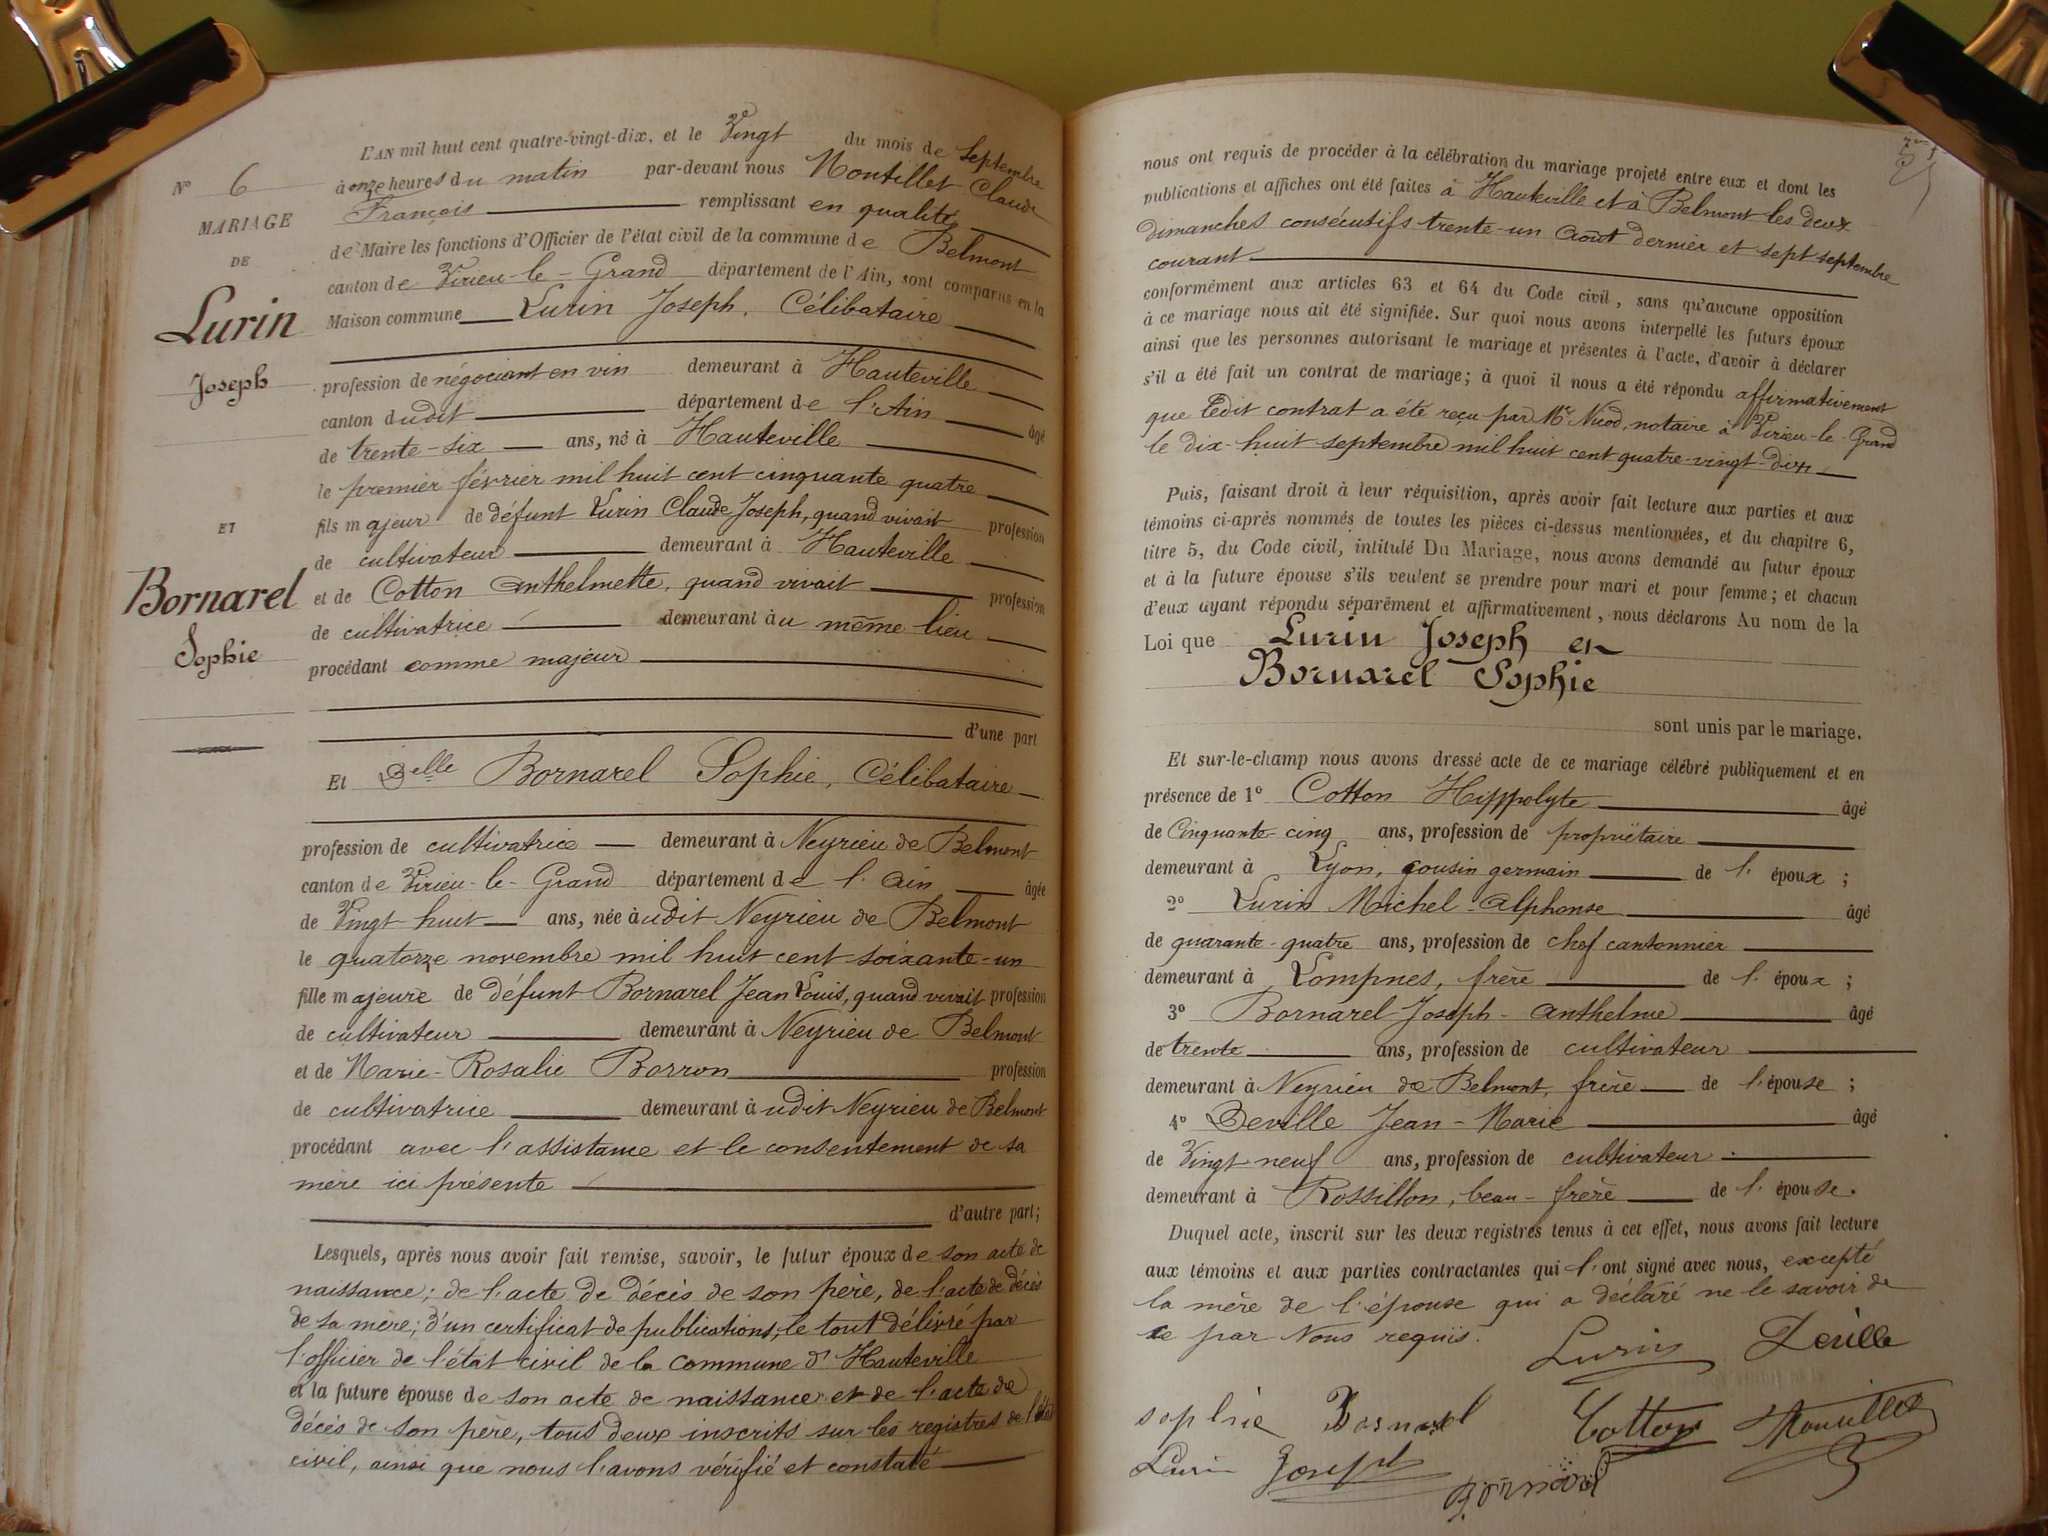 N° 6
MARIAGE
DE
Lurin
Joseph
ET
Bornarel
Sophie
L'AN mil huit cent quatre-vingt-dix, et le Vingt du mois de Septembre
à onze heures du matin par-devant nous Montillet Claude
François remplissant en qualité
de Maire les fonctions d'Officier de l'état civil de la commune de Belmont
canton de Virieu-le-Grand département de l'Ain, sont comparus en la
Maison commune Lurin Joseph, Célibataire
profession de négociant en vin demeurant à Hauteville
canton dudit département de l'Ain âgé
de trente-six ans, né à Hauteville
le premier février mil huit cent cinquante quatre
fils majeur de défunt Lurin Claude Joseph, quand vivait profession
de cultivateur demeurant à Hauteville
et de Cotton Anthelmette, quand vivait profession
de cultivatrice demeurant au même lieu
procédant comme majeur
d'une part
Et Delle Bornarel Sophie, Célibataire
profession de cultivatrice demeurant à Neyrieu de Belmont
canton de Virieu-le-Grand département de l'Ain âgée
de Vingt huit ans, née àudit Neyrieu de Belmont
le quatorze novembre mil huit cent soixante-un
fille majeure de défunt Bornarel Jean Louis, quand vivait profession
de cultivateur demeurant à Neyrieu de Belmont
et de Marie-Rosalie Borron profession
de cultivatrice demeurant àudit Neyrieu de Belmont
procédant avec l'assistance et le consentement de sa
mère ici présente
d'autre part;
Lesquels, après nous avoir fait remise, savoir, le futur époux de son acte de
naissance; de l'acte de décès de son père, de l'acte de décès
de sa mère; d'un certificat de publications; le tout délivré par
l'officier de l'état civil de la commune d'Hauteville
et la future épouse de son acte de naissance et de l'acte de
décès de son père, tous deux inscrits sur les registres de l'état
civil, ainsi que nous l'avons vérifié et constaté
nous ont requis de procéder à la célébration du mariage projeté entre eux et dont les
publications et affiches ont été faites à Hauteville et à Belmont les deux
dimanches consécutifs trente-un Août dernier et sept septembre
courant
conformément aux articles 63 et 64 du Code civil, sans qu'aucune opposition
à ce mariage nous ait été signifiée. Sur quoi nous avons interpellé les futurs époux
ainsi que les personnes autorisant le mariage et présentes à l'acte, d'avoir à déclarer
s'il a été fait un contrat de mariage; à quoi il nous a été répondu affirmativement
que ledit contrat a été reçu par Me Nicod, notaire à Virieu-le-Grand
le dix-huit septembre mil huit cent quatre-vingt-dix
Puis, faisant droit à leur réquisition, après avoir fait lecture aux parties et aux
témoins ci-après nommés de toutes les pièces ci-dessus mentionnées, et du chapitre 6,
titre 5, du Code civil, intitulé Du Mariage, nous avons demandé au futur époux
et à la future épouse s'ils veulent se prendre pour mari et pour femme; et chacun
d'eux ayant répondu séparément et affirmativement, nous déclarons Au nom de la
Loi que Lurin Joseph et
Bornarel Sophie
sont unis par le mariage.
Et sur-le-champ nous avons dressé acte de ce mariage célébré publiquement et en
présence de 1° Cotton Hippolyte âgé
de Cinquante-cinq ans, profession de propriétaire
demeurant à Lyon, cousin germain de l'époux;
2° Lurin Michel-Alphonse âgé
de quarante-quatre ans, profession de chef cantonnier
demeurant à Lompnes, frère de l'époux;
3° Bornarel Joseph-Anthelme âgé
de trente ans, profession de cultivateur
demeurant à Neyrieu de Belmont, frère de l'épouse;
4° Deville Jean-Marie âgé
de Vingt neuf ans, profession de cultivateur
demeurant à Rossillon, beau-frère de l'épouse.
Duquel acte, inscrit sur les deux registres tenus à cet effet, nous avons fait lecture
aux témoins et aux parties contractantes qui l'ont signé avec nous, excepté
la mère de l'épouse qui a déclaré ne le savoir de
ce par Nous requis.
Lurin Deville
sophie Bornarel Cotton Montillet
Lurin Joseph Bornarel